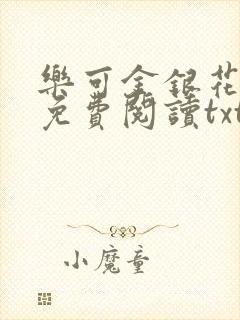 樂可金銀花
免費閱讀txt
小魔童